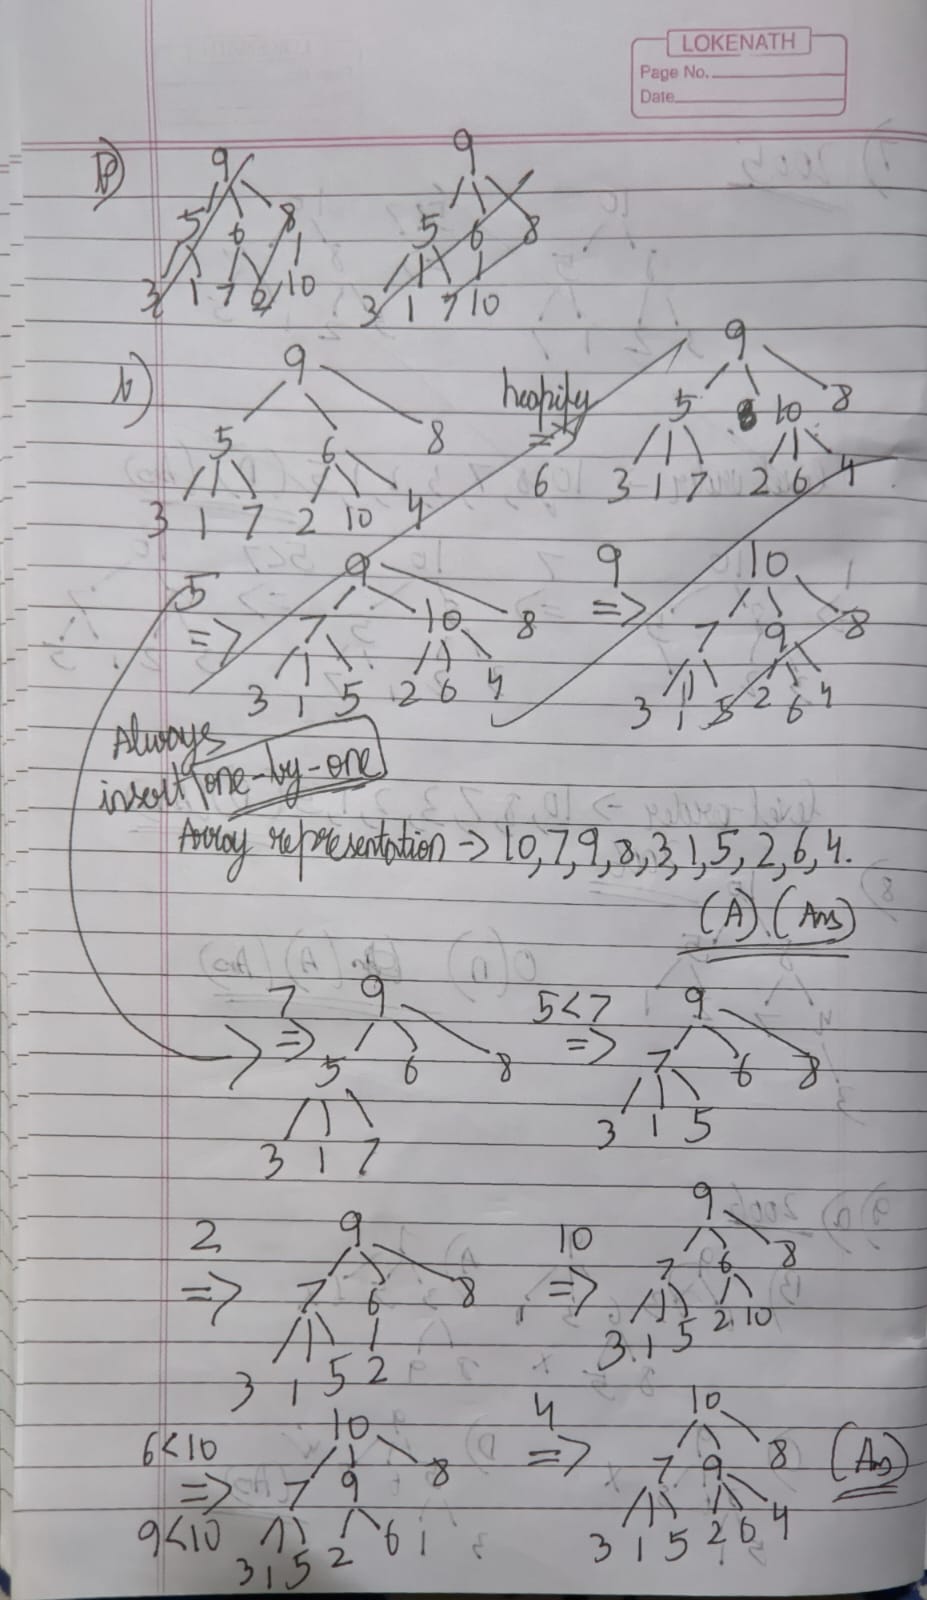 LOKENATH
Page No.
Date
b)
9
5 6 8
3 1 7 2 10
9
5 6 8
3 1 7 10
b)
9
5 6 8
3 1 7 2 10 4
heapify
=>
6
9
5 10 8
3 1 7 2 6 4
5
=>
9
7 10 8
3 1 5 2 6 4
9
=>
10
7 9 8
3 1 5 2 6 4
Always
insert one-by-one
Array representation -> 10, 7, 9, 8, 3, 1, 5, 2, 6, 4.
(A) (Ans)
7
=>
9
5 6 8
3 1 7
5<7
=>
9
7 6 8
3 1 5
2
=>
9
7 6 8
3 1 5 2
10
=>
9
7 6 8
3 1 5 2 10
6<10
=>
9<10
10
7 9 8
3 1 5 2 6
4
=>
10
7 9 8
3 1 5 2 6 4
(Ans)